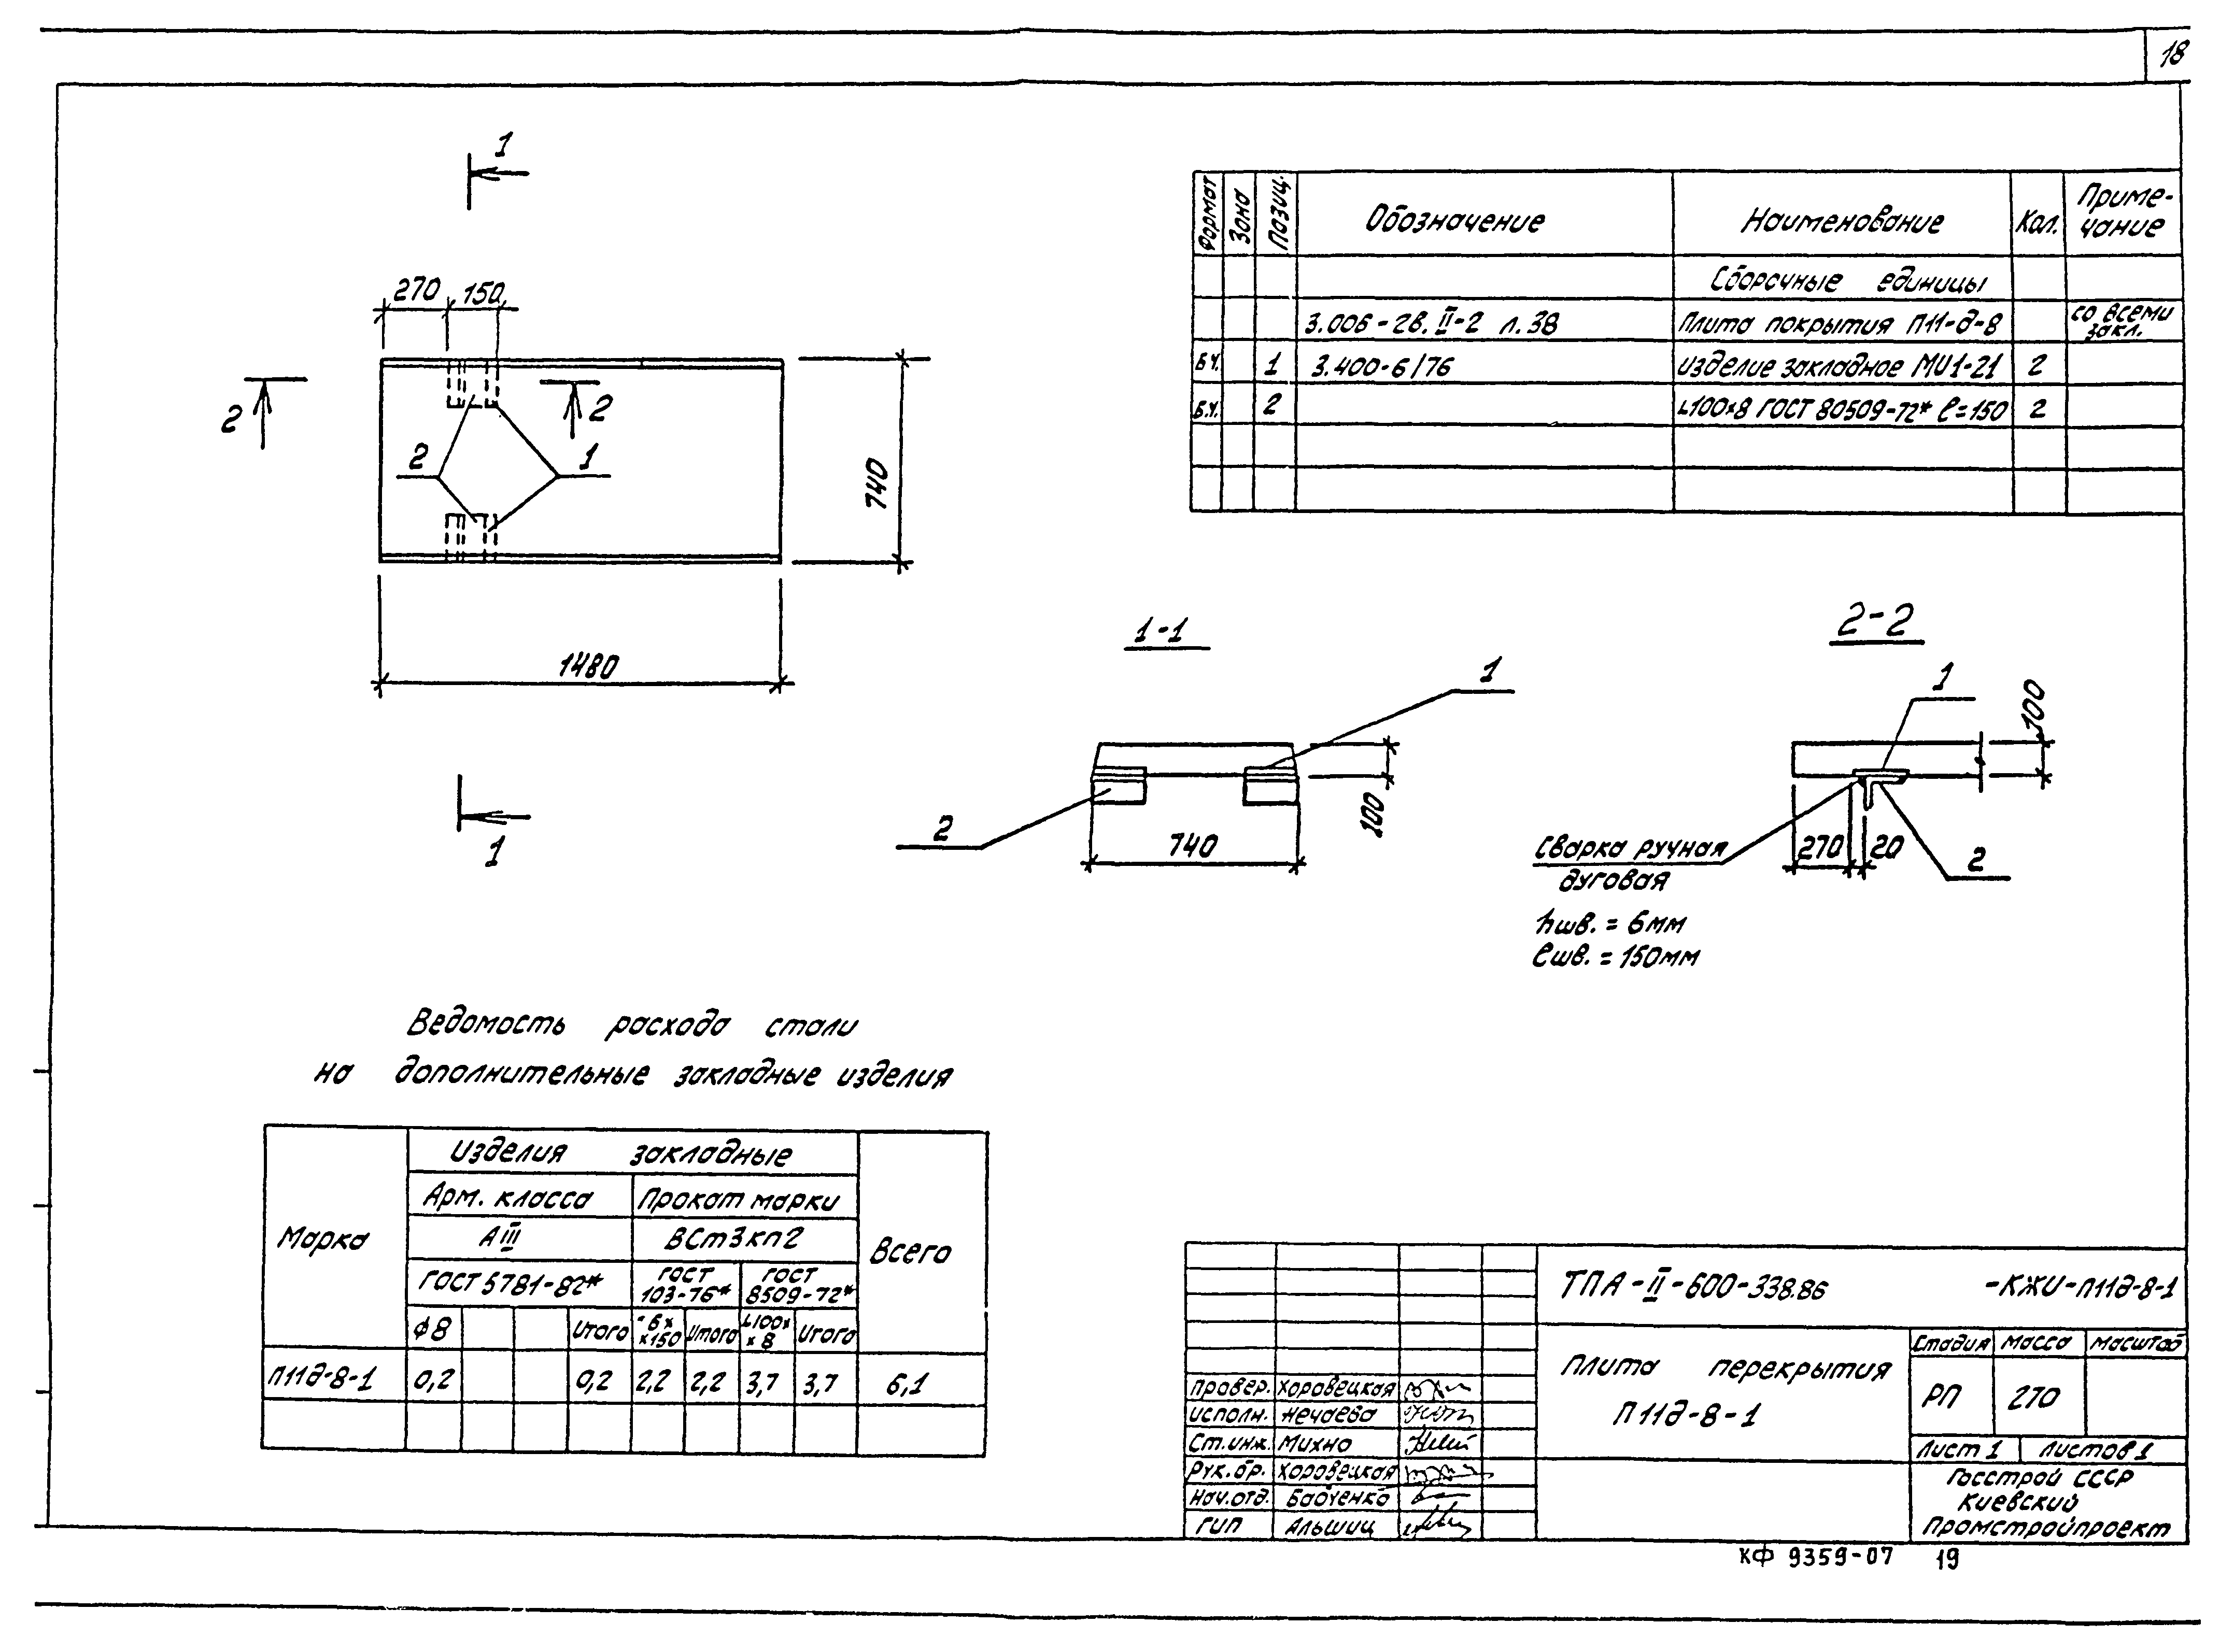 18
1
270 150
2 2
2 1
740
1480
1
Формат Зона Позиц. Обозначение Наименование Кол. Приме-
чание
Сборочные единицы
3.006-2в. II-2 л.38 Плита покрытия П11-д-8 со всеми
закл.
Б.Ч. 1 3.400-6/76 изделие закладное МИ1-21 2
Б.Ч. 2 ∟100×8 ГОСТ 80509-72* ℓ=150 2
1-1
1
2
740
100
2-2
1
100
270 20
2
Сварка ручная
дуговая
hшв. = 6мм
ℓшв. = 150мм
Ведомость расхода стали
на дополнительные закладные изделия
Марка Изделия закладные Всего
Арм. класса Прокат марки
АIII ВСт3кп2
ГОСТ 5781-82* ГОСТ
103-76* ГОСТ
8509-72*
ф8 Итого -6×
×150 Итого ∟100×
×8 Итого
П11д-8-1 0,2 0,2 2,2 2,2 3,7 3,7 6,1
ТПА-II-600-338.86 -КЖИ-П11д-8-1
Плита перекрытия
П11д-8-1
Стадия Масса Масштаб
РП 270
Лист 1 Листов 1
Госстрой СССР
Киевский
Промстройпроект
Провер. Хоровецкая
Исполн. Нечаева
Ст.инж. Михно
Рук.бр. Хоровецкая
Нач.отд. Бабченко
ГИП Альшиц
КФ 9359-07 19